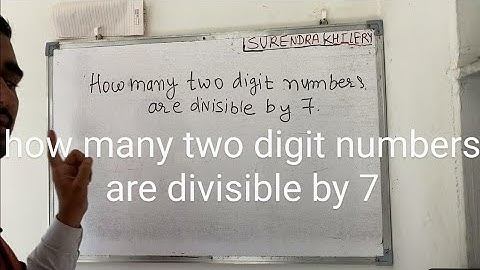 SURENDRA KHILERY
How many two digit numbers
are divisible by 7.
how many two digit numbers
are divisible by 7